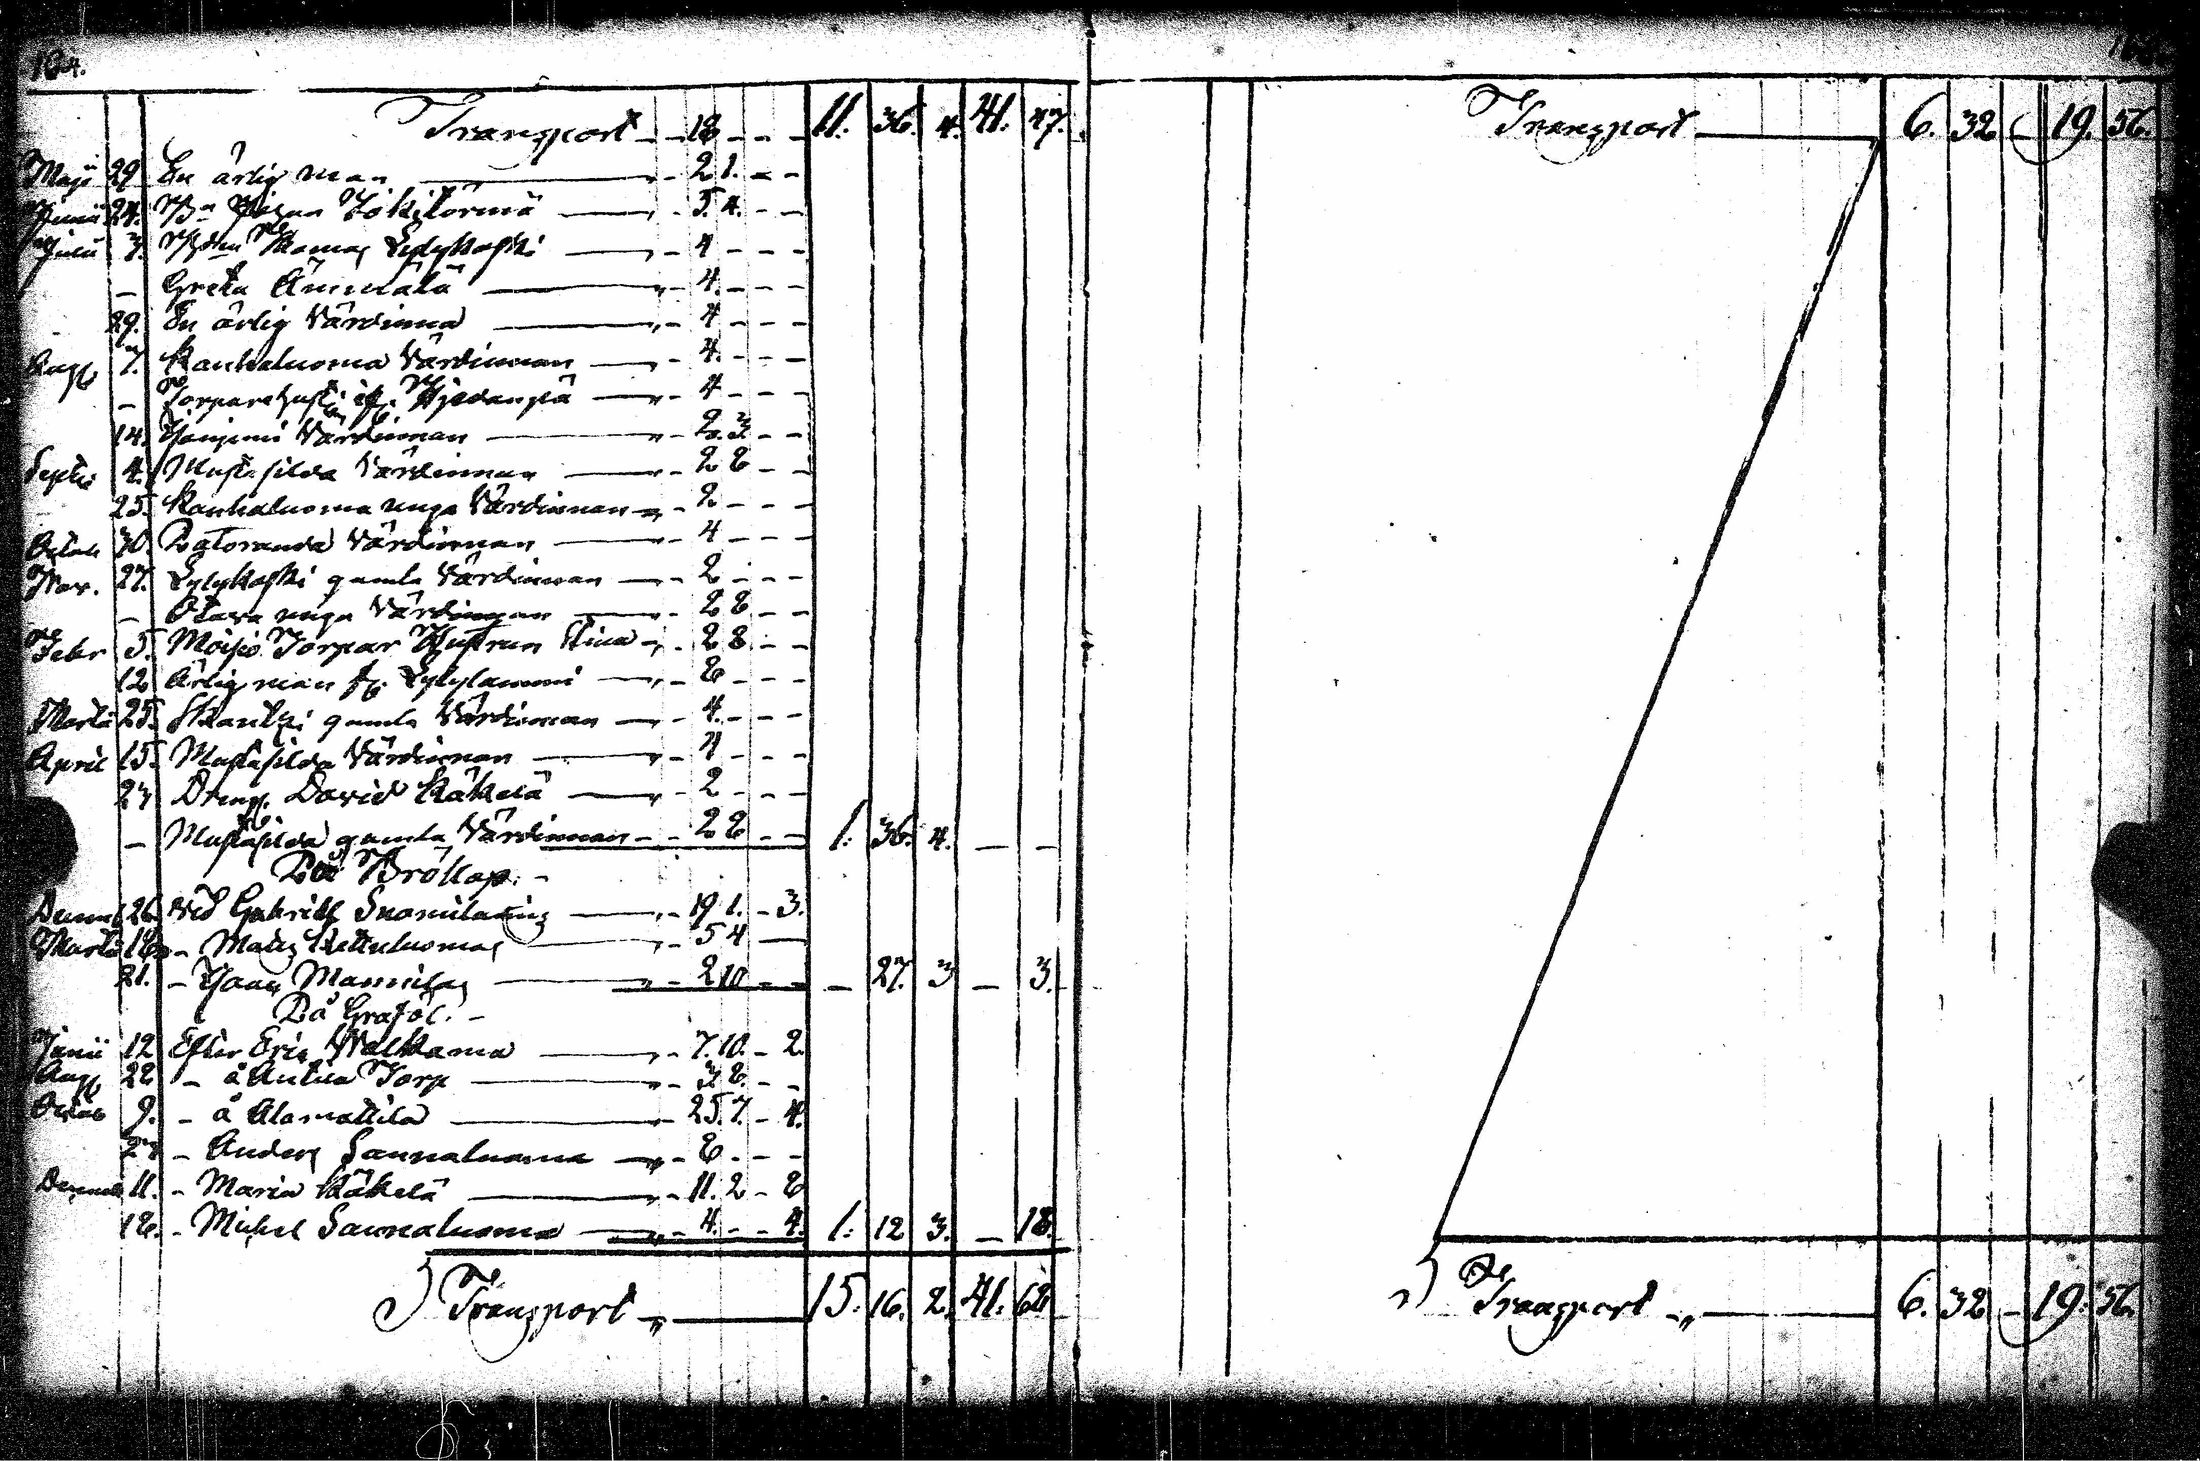 164.
Transport - - 18 - - - 11. 36. 4. 41. 47.
Maji 29 En ärlig man - 2 1. - -
Junii 24. Jokitörmä - 5. 4. - -
Julii 7. Thomas Lylykoski - 4 - - -
- Greta Ämmälä - 4. - - -
29. En ärlig Värdinna - 4 - - -
Aug. 7. Kauhaluoma Värdinnan - 4. - - -
- - 4 - - -
14. Värdinnan - 2. 3 - -
Septbr 4. Mustasilda Värdinnan - 2 8 - -
25. Kauhaluoma unga Värdinnan - 2 - - -
Octob 30. Patoranda Värdinnan - 4 - - -
Nov. 27. Lylykoski gamla Värdinnan - 2 - - -
- Otava unga Värdinnan - 2 8 - -
Febr 5. Moisio Torpar Hustrun Stina - 2 8 - -
12 Ärlig man fr. Lylylammi - 8 - - -
Martii 25. Skantzi gamla Värdinnan - 4. - - -
April 15. Mustasilda Värdinnan - 4 - - -
23 Dreng. David Käkelä - 2 - - -
- Mustasilda gamla Värdinnan - 2 8 - - 1. 36. 4. - -
På Bröllop. -
Decemb 26. Vid Gabriel - 19 1. - 3.
Martii 18 - Mats - 5 4 -
21. - Mannilas - 2 10 - - - 27. 3 - 3.
På Graföl. -
Junii 12 Efter Eric Walkama - 7. 10. - 2.
Aug. 28 - å Anttila Torp - 3 8. - -
Octob 9. - å Alamattila - 25. 7. - 4.
23 - Anders Saunaluoma - 8 - - -
Decemb 11. - Maria Käkelä - 11. 2 - 8
18. - Michel Saunaluoma - 4. - - 4. 1. 12 3. - 18.
Transport „ 15. 16. 2. 41. 68
Transport 6. 32 - 19. 56.
Transport - „ 6. 32 - 19. 56.